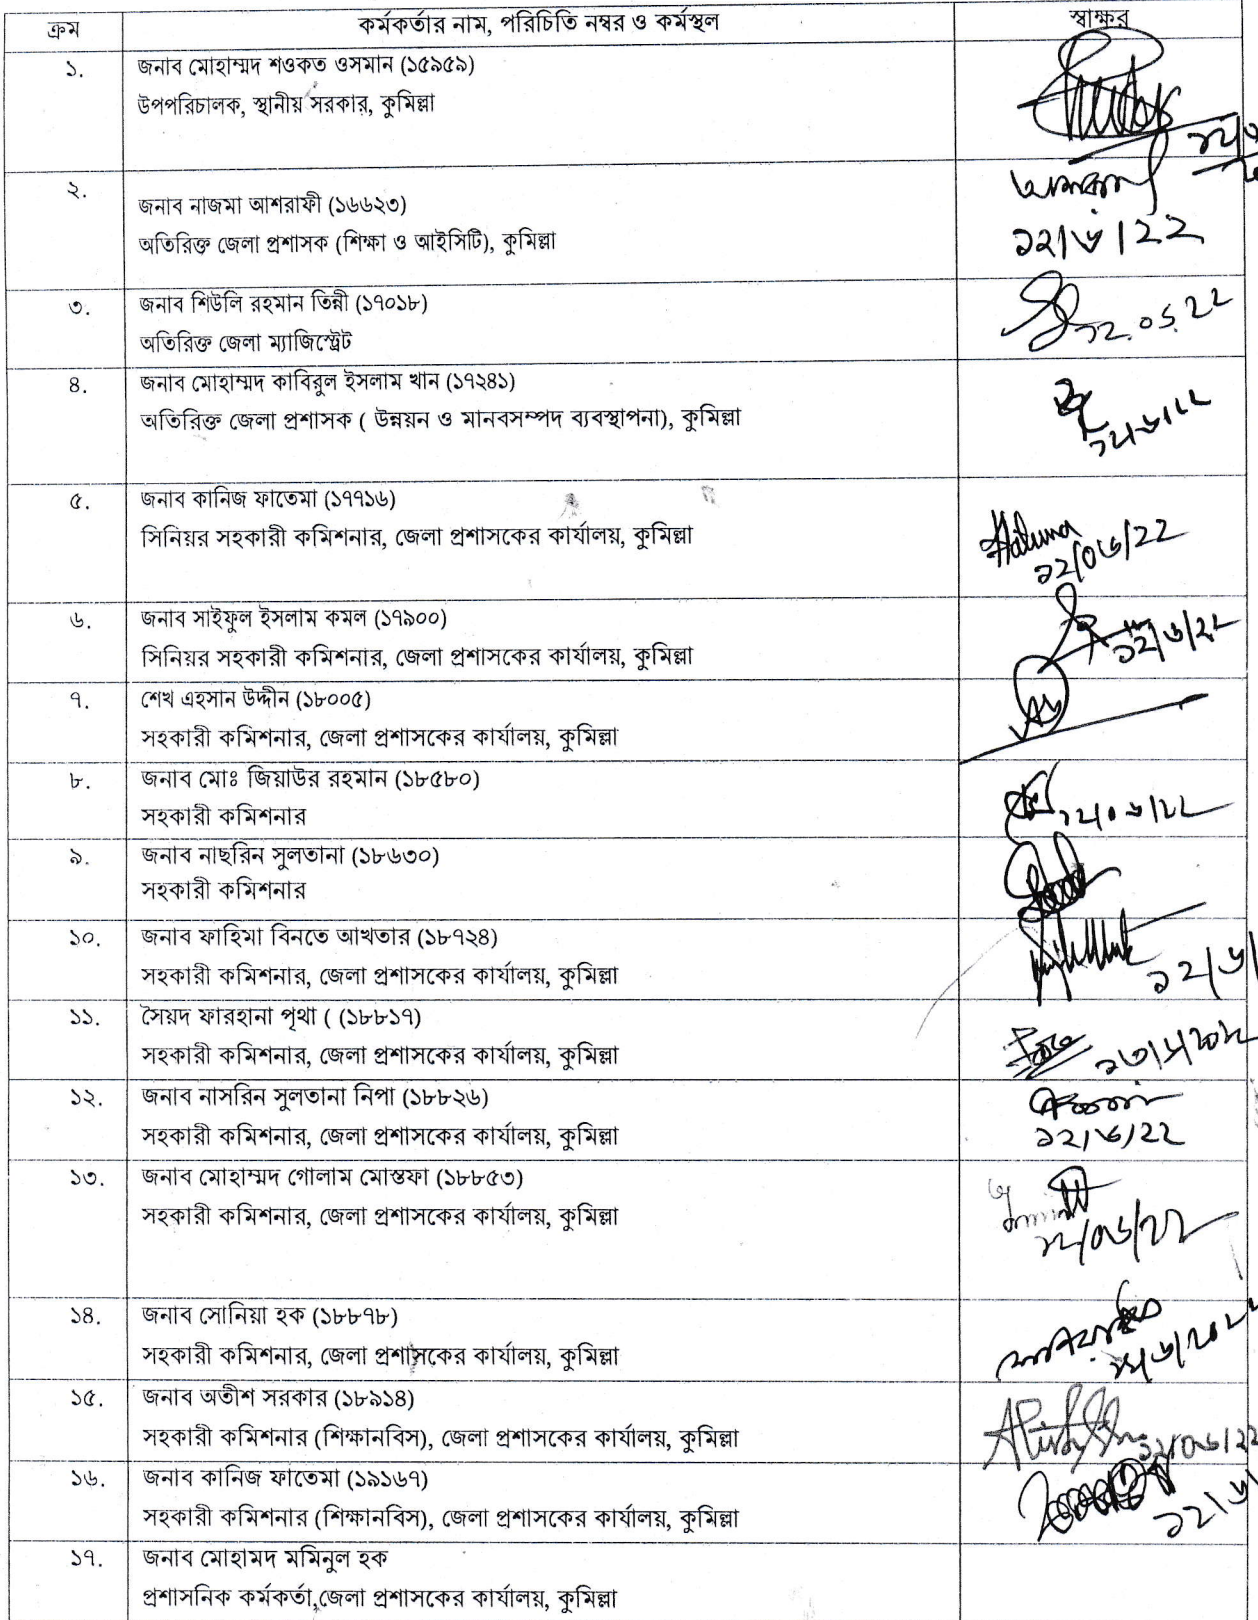 ক্রম কর্মকর্তার নাম, পরিচিতি নম্বর ও কর্মস্থল স্বাক্ষর
১. জনাব মোহাম্মদ শওকত ওসমান (১৫৯৫৯)
উপপরিচালক, স্থানীয় সরকার, কুমিল্লা
২.
জনাব নাজমা আশরাফী (১৬৬২৩)
অতিরিক্ত জেলা প্রশাসক (শিক্ষা ও আইসিটি), কুমিল্লা
১২/৬/22
৩. জনাব শিউলি রহমান তিন্নী (১৭০১৮)
অতিরিক্ত জেলা ম্যাজিস্ট্রেট
৪. জনাব মোহাম্মদ কাবিরুল ইসলাম খান (১৭২৪১)
অতিরিক্ত জেলা প্রশাসক ( উন্নয়ন ও মানবসম্পদ ব্যবস্থাপনা), কুমিল্লা
৫. জনাব কানিজ ফাতেমা (১৭৭১৬)
সিনিয়র সহকারী কমিশনার, জেলা প্রশাসকের কার্যালয়, কুমিল্লা
১২/০৬/22
৬. জনাব সাইফুল ইসলাম কমল (১৭৯০০)
সিনিয়র সহকারী কমিশনার, জেলা প্রশাসকের কার্যালয়, কুমিল্লা
৭. শেখ এহসান উদ্দীন (১৮০০৫)
সহকারী কমিশনার, জেলা প্রশাসকের কার্যালয়, কুমিল্লা
৮. জনাব মোঃ জিয়াউর রহমান (১৮৫৮০)
সহকারী কমিশনার
৯. জনাব নাছরিন সুলতানা (১৮৬৩০)
সহকারী কমিশনার
১০. জনাব ফাহিমা বিনতে আখতার (১৮৭২৪)
সহকারী কমিশনার, জেলা প্রশাসকের কার্যালয়, কুমিল্লা
১১. সৈয়দ ফারহানা পৃথা ( (১৮৮১৭)
সহকারী কমিশনার, জেলা প্রশাসকের কার্যালয়, কুমিল্লা
১২. জনাব নাসরিন সুলতানা নিপা (১৮৮২৬)
সহকারী কমিশনার, জেলা প্রশাসকের কার্যালয়, কুমিল্লা
১২/৬/22
১৩. জনাব মোহাম্মদ গোলাম মোস্তফা (১৮৮৫৩)
সহকারী কমিশনার, জেলা প্রশাসকের কার্যালয়, কুমিল্লা
১৪. জনাব সোনিয়া হক (১৮৮৭৮)
সহকারী কমিশনার, জেলা প্রশাসকের কার্যালয়, কুমিল্লা
১৫. জনাব অতীশ সরকার (১৮৯১৪)
সহকারী কমিশনার (শিক্ষানবিস), জেলা প্রশাসকের কার্যালয়, কুমিল্লা
১৬. জনাব কানিজ ফাতেমা (১৯১৬৭)
সহকারী কমিশনার (শিক্ষানবিস), জেলা প্রশাসকের কার্যালয়, কুমিল্লা
১৭. জনাব মোহামদ মমিনুল হক
প্রশাসনিক কর্মকর্তা,জেলা প্রশাসকের কার্যালয়, কুমিল্লা